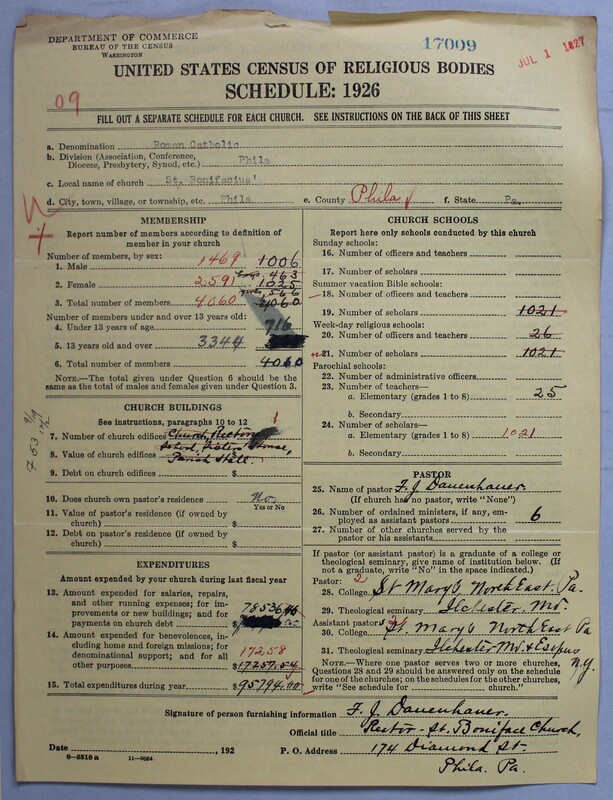 DEPARTMENT OF COMMERCE
BUREAU OF THE CENSUS
WASHINGTON
17009
JUL 1 1927
UNITED STATES CENSUS OF RELIGIOUS BODIES
SCHEDULE: 1926
09
FILL OUT A SEPARATE SCHEDULE FOR EACH CHURCH. SEE INSTRUCTIONS ON THE BACK OF THIS SHEET
a. Denomination Roman Catholic
b. Division (Association, Conference,
Diocese, Presbytery, Synod, etc.) Phila
c. Local name of church St. Bonifacius'
d. City, town, village, or township, etc. Phila. e. County Phila f. State Pa.
MEMBERSHIP
Report number of members according to definition of
member in your church
Number of members, by sex:
1. Male 1469 1006
463
2. Female 2591 1025
566
3. Total number of members 4060 4060
Number of members under and over 13 years old:
4. Under 13 years of age 716
5. 13 years old and over 3344
6. Total number of members 4060
NOTE.—The total given under Question 6 should be
the same as the total of males and females given under Question 3.
CHURCH BUILDINGS
See instructions, paragraphs 10 to 12
7. Number of church edifices Church, Rectory 1
8. Value of church edifices School, Sisters House,
Parish Hall.
9. Debt on church edifices $
10. Does church own pastor's residence No.
Yes or No
11. Value of pastor's residence (if owned by
church) $
12. Debt on pastor's residence (if owned by
church) $
EXPENDITURES
Amount expended by your church during last fiscal year
13. Amount expended for salaries, repairs,
and other running expenses; for im-
provements or new buildings; and for
payments on church debt $ 78536.46
14. Amount expended for benevolences,
including home and foreign missions; for
denominational support; and for all
other purposes 17258
$ 17257.54
15. Total expenditures during year $ 95794.00
CHURCH SCHOOLS
Report here only schools conducted by this church
Sunday schools:
16. Number of officers and teachers
17. Number of scholars
Summer vacation Bible schools:
18. Number of officers and teachers
19. Number of scholars 1021
Week-day religious schools:
20. Number of officers and teachers 26
21. Number of scholars 1021
Parochial schools:
22. Number of administrative officers
23. Number of teachers—
a. Elementary (grades 1 to 8) 25
b. Secondary
24. Number of scholars—
a. Elementary (grades 1 to 8) 1021
b. Secondary
PASTOR
25. Name of pastor F. J. Dauenhauer.
(If church has no pastor, write "None")
26. Number of ordained ministers, if any, em-
ployed as assistant pastors 6
27. Number of other churches served by the
pastor or his assistants
If pastor (or assistant pastor) is a graduate of a college or
theological seminary, give name of institution below. (If
not a graduate, write "No" in the space indicated.)
Pastor: 2
28. College St Mary's North East, Pa.
29. Theological seminary Ilchester, Md.
Assistant pastor:
30. College St. Mary's North East Pa
31. Theological seminary Ilchester Md. & Esopus
N.Y.
NOTE.—Where one pastor serves two or more churches,
Questions 28 and 29 should be answered only on the schedule
for one of the churches; on the schedules for the other churches,
write "See schedule for church."
Signature of person furnishing information F. J. Dauenhauer.
Official title Rector - St. Boniface Church,
Date , 192 P. O. Address 174 Diamond St.
Phila. Pa.
8-5518 a 11-9054